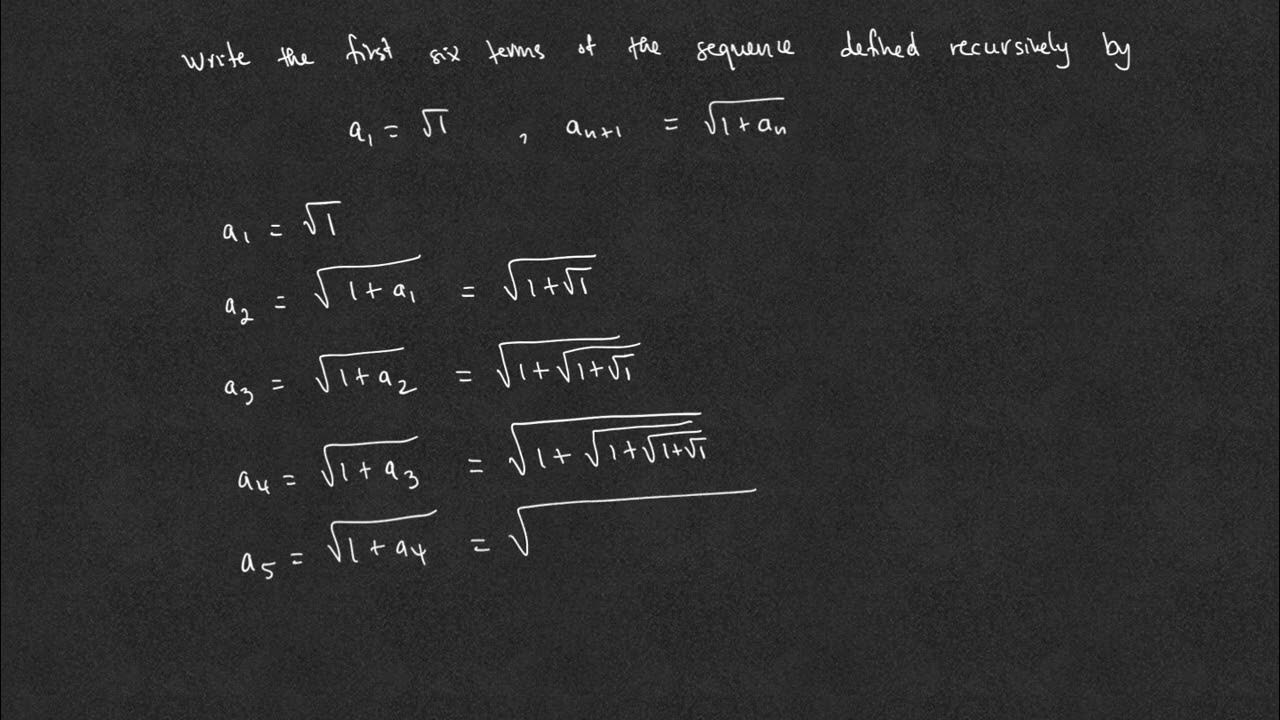 Write the first six terms of the sequence defined recursively by
a₁ = √1 , aₙ₊₁ = √(1 + aₙ)
a₁ = √1
a₂ = √(1 + a₁) = √(1 + √1)
a₃ = √(1 + a₂) = √(1 + √(1 + √1))
a₄ = √(1 + a₃) = √(1 + √(1 + √(1 + √1)))
a₅ = √(1 + a₄) = √